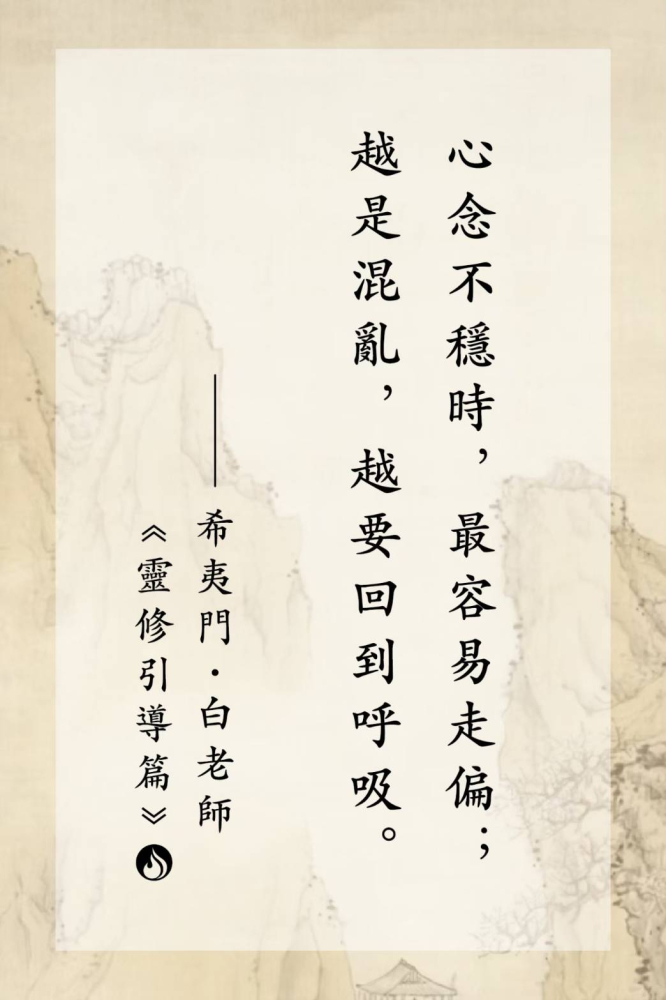 心念不穩時，最容易走偏；
越是混亂，越要回到呼吸。
——希夷門·白老師
《靈修引導篇》